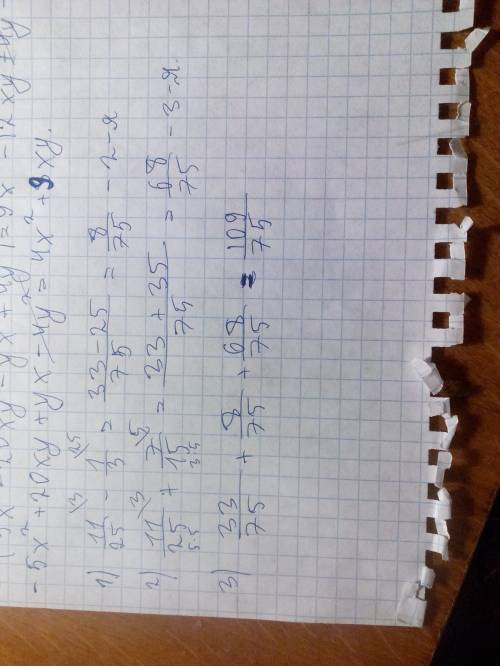 - 5x² + 20xy + x - y = 4x² + 9xy.
1) 11/25 \3 - 1/3 \25 = 33-25/75 = 8/75 - 2-я
2) 11/25 \3 + 7/15 \5 = 33+35/75 = 68/75 - 3-я.
5·5 3·5
3) 33/75 + 8/75 + 68/75 = 109/75